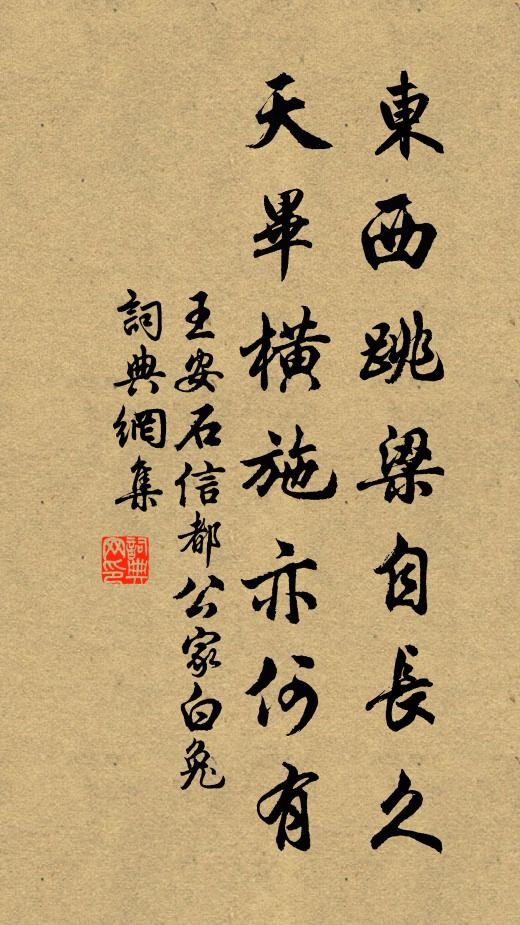 東西跳梁自長久
天畢橫施亦何有
王安石信都公家白兔
詞典網集
詞典網印